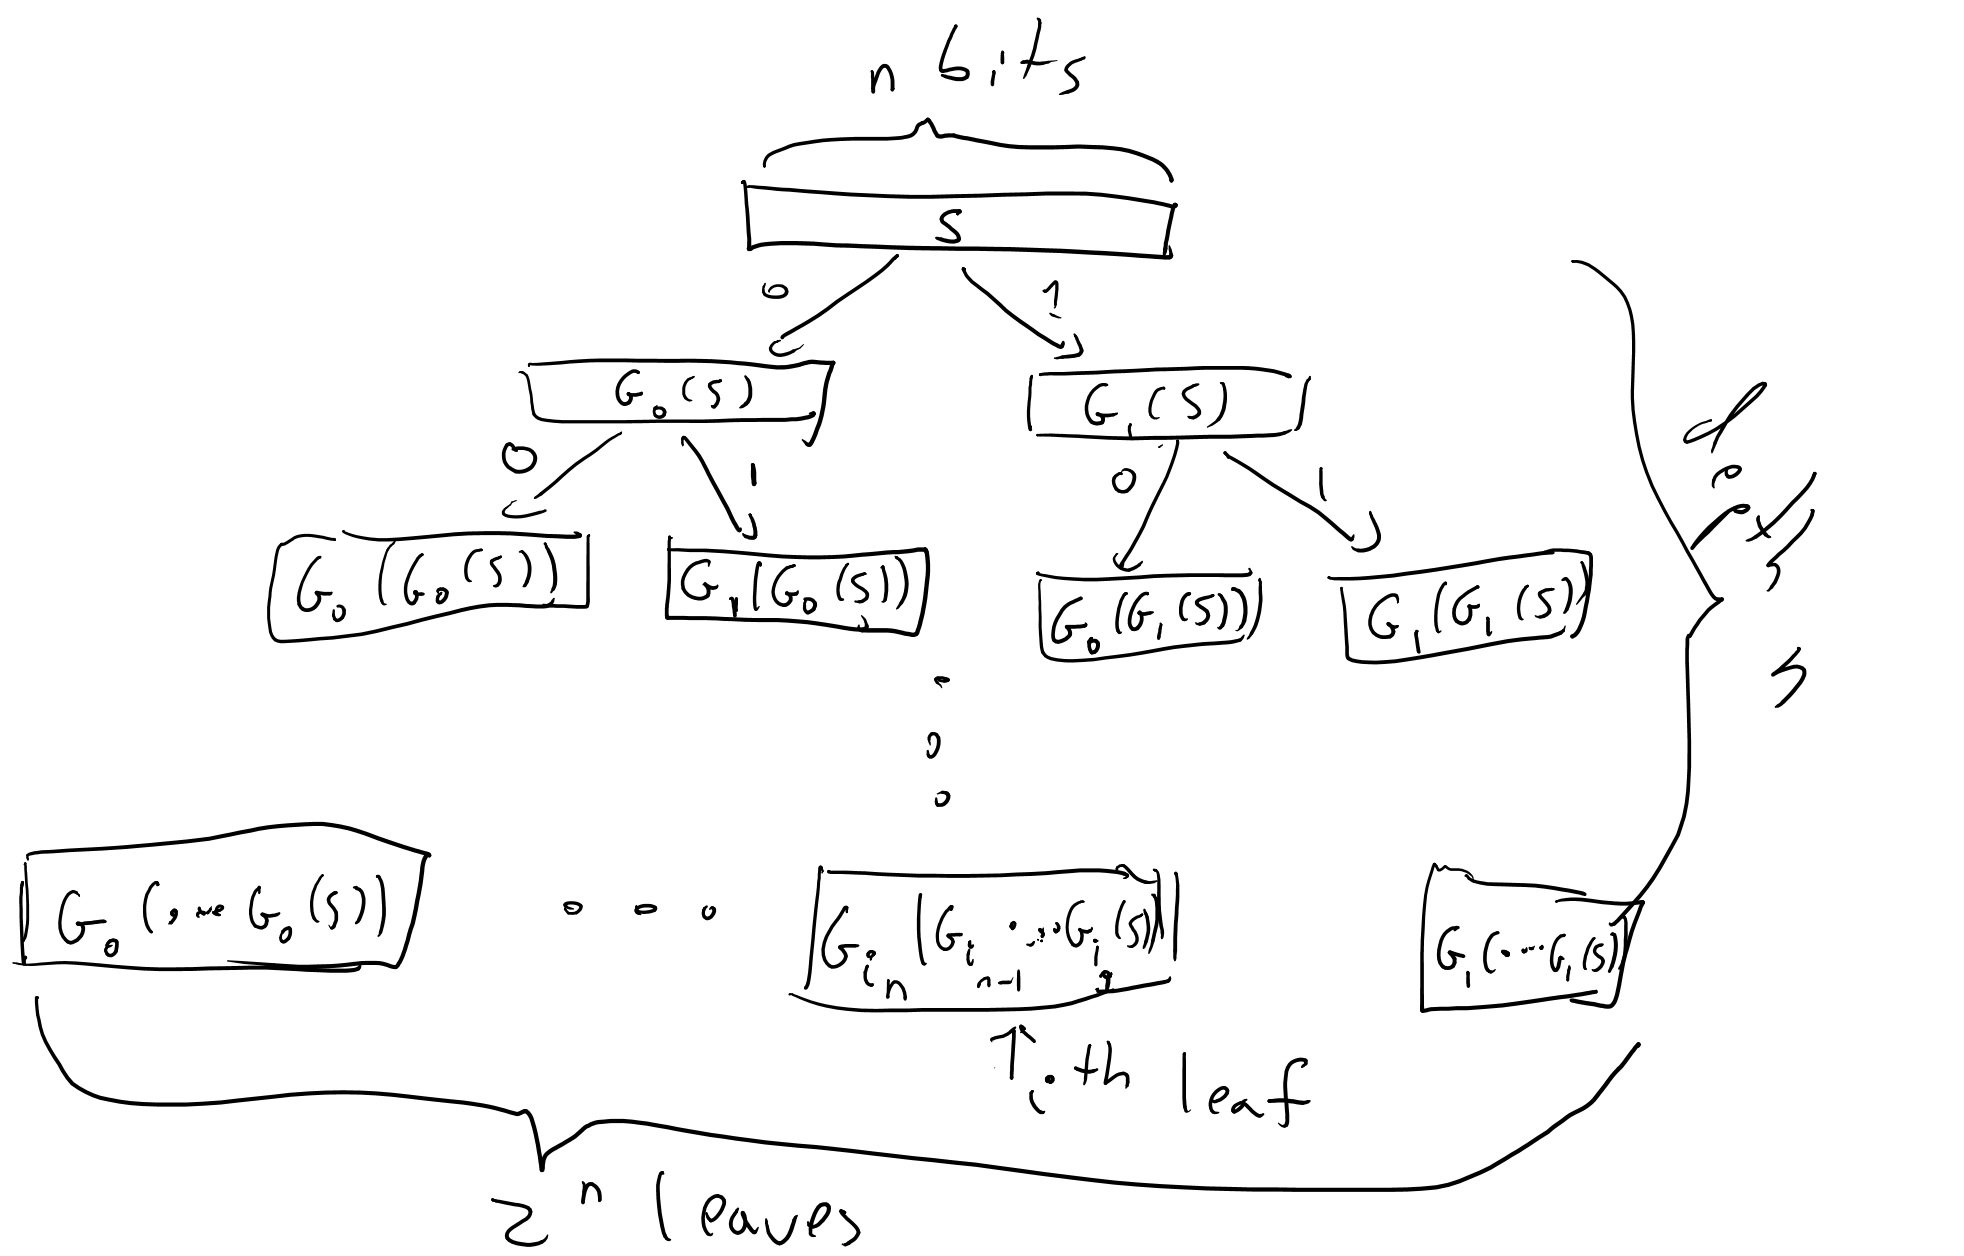 n bits
S
0 1
G₀(S) G₁(S)
0 1 0 1
G₀(G₀(S)) G₁(G₀(S)) G₀(G₁(S)) G₁(G₁(S))
depth n
G₀(...G₀(S)) G_{i_n}(G_{i_{n-1}}...G_{i_1}(S)) G₁(...G₁(S))
↑ i-th leaf
2ⁿ leaves